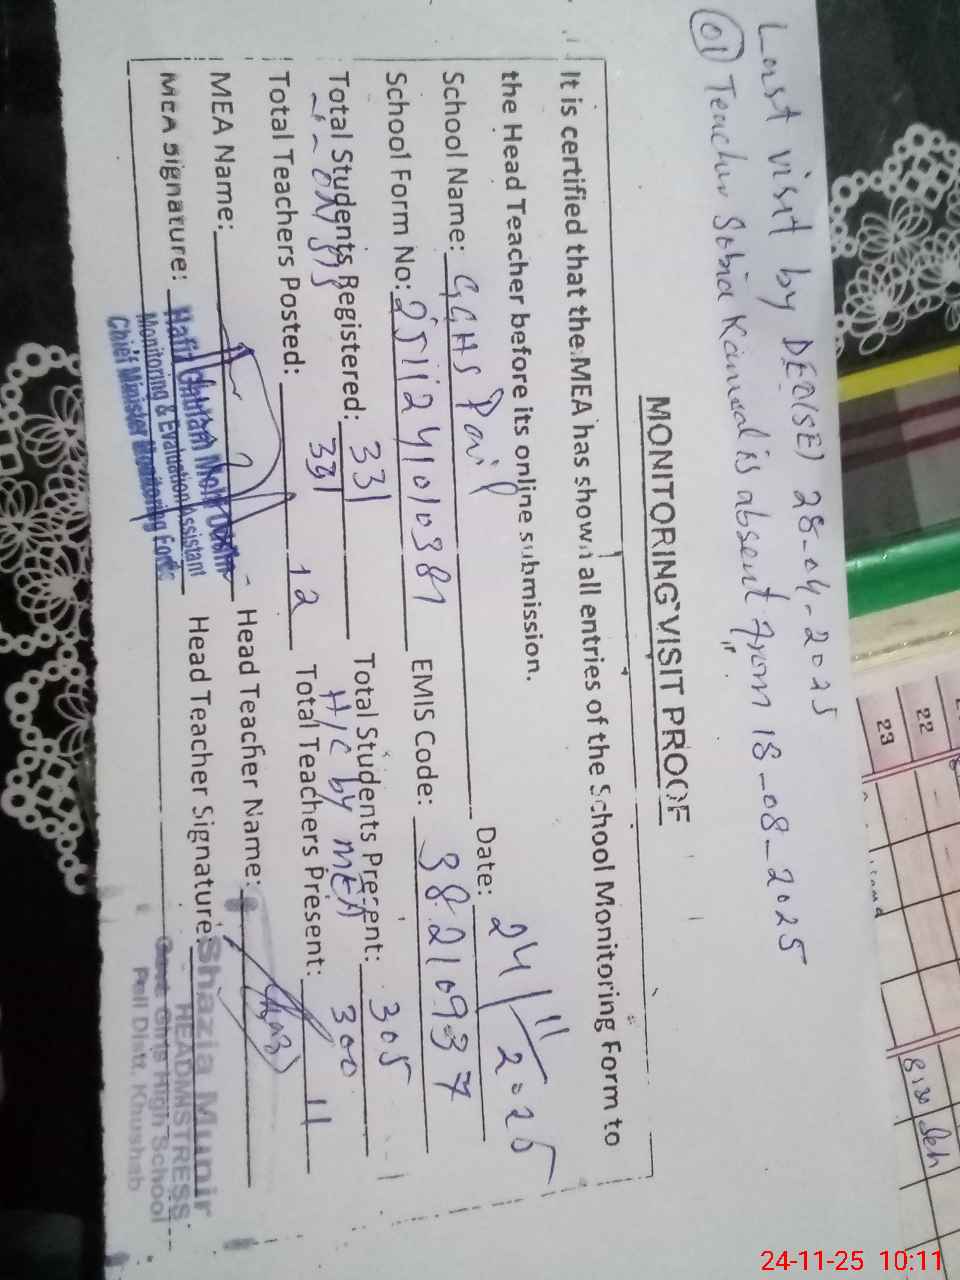 Last visit by DEO(SE) 28-04-2025
01 Teacher Sobia Kanwal is absent from 18-08-2025
MONITORING VISIT PROOF
It is certified that the MEA has shown all entries of the School Monitoring Form to
the Head Teacher before its online submission.
School Name: GGHS Pail Date: 24/11/2025
School Form No: 2511241010381 EMIS Code: 38210937
Total Students Registered: 331 Total Students Present: 305
331 H/C by MEA 300
Total Teachers Posted: 12 Total Teachers Present: 11
MEA Name: Head Teacher Name:
MEA Signature: Head Teacher Signature:
Monitoring & Evaluation Assistant
Chief Minister Monitoring Force
Shazia Munir
HEADMISTRESS
Govt. Girls High School
Pail Distt. Khushab
22
23
8:30
24-11-25 10:11